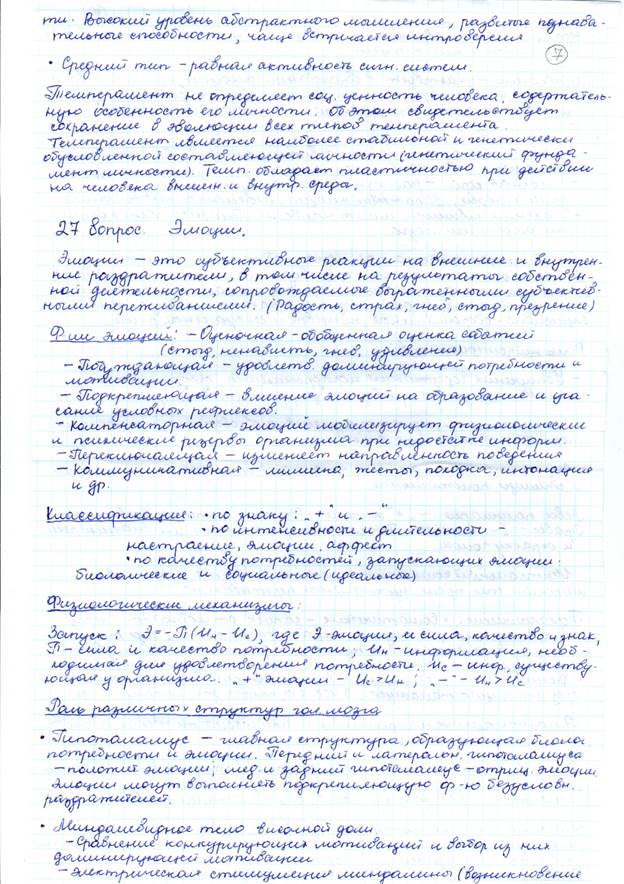 ти. Высокий уровень абстрактного мышления, развитые познава-
тельные способности, чаще встречается интроверсия
7
• Средний тип – равная активность сигн. систем.
Темперамент не определяет соц. ценность человека, содержатель-
ную особенность его личности. Об этом свидетельствует
сохранение в эволюции всех типов темперамента.
Темперамент является наиболее стабильной и генетически
обусловленной составляющей личности (генетический фунда-
мент личности). Темп. обладает пластичностью при действии
на человека внешн. и внутр. среды.
27 вопрос. Эмоции.
Эмоции – это субъективные реакции на внешние и внутрен-
ние раздражители, в том числе на результаты собствен-
ной деятельности, сопровождаемые выраженными субъектив-
ными переживаниями. (Радость, страх, гнев, стыд, презрение)
Ф-ии эмоций: – Оценочная – обобщенная оценка событий
(стыд, ненависть, гнев, удивление)
– Побуждающая – удовлетв. доминирующей потребности и
мотивации.
– Подкрепляющая – влияние эмоций на образование и уга-
сание условных рефлексов.
– Компенсаторная – эмоций мобилизирует физиологические
и психические резервы организма при недостатке информ.
– Переключающая – изменяет направленность поведения
– Коммуникативная – мимика, жесты, походка, интонация
и др.
Классификация: • по знаку: „+" и „–"
• по интенсивности и длительности –
настроение, эмоции, аффект
• по качеству потребностей, запускающих эмоции:
биологические и социальные (идеальные)
Физиологические механизмы:
Запуск: Э = – П (Ин – Ис), где Э – эмоция, и сила, качество и знак,
П – сила и качество потребности, Ин – информация, необ-
ходимая для удовлетворения потребности. Ис – инф, существу-
ющая у организма. „+" эмоции – Ис > Ин ; „–" – Ин > Ис
Роль различных структур гол. мозга
• Гипоталамус – главная структура, образующая биолог.
потребности и эмоции. Передний и латеральн. гипоталамус
– положит эмоции; мед. и задний гипоталамус – отриц. эмоции.
Эмоции могут выполнять подкрепляющую ф-ю безусловн.
раздражителей.
• Миндалевидное тело височной доли
– Сравнение конкурирующих мотиваций и выбор из них
доминирующей мотивации
– Электрическая стимуляция миндалины (возникновение